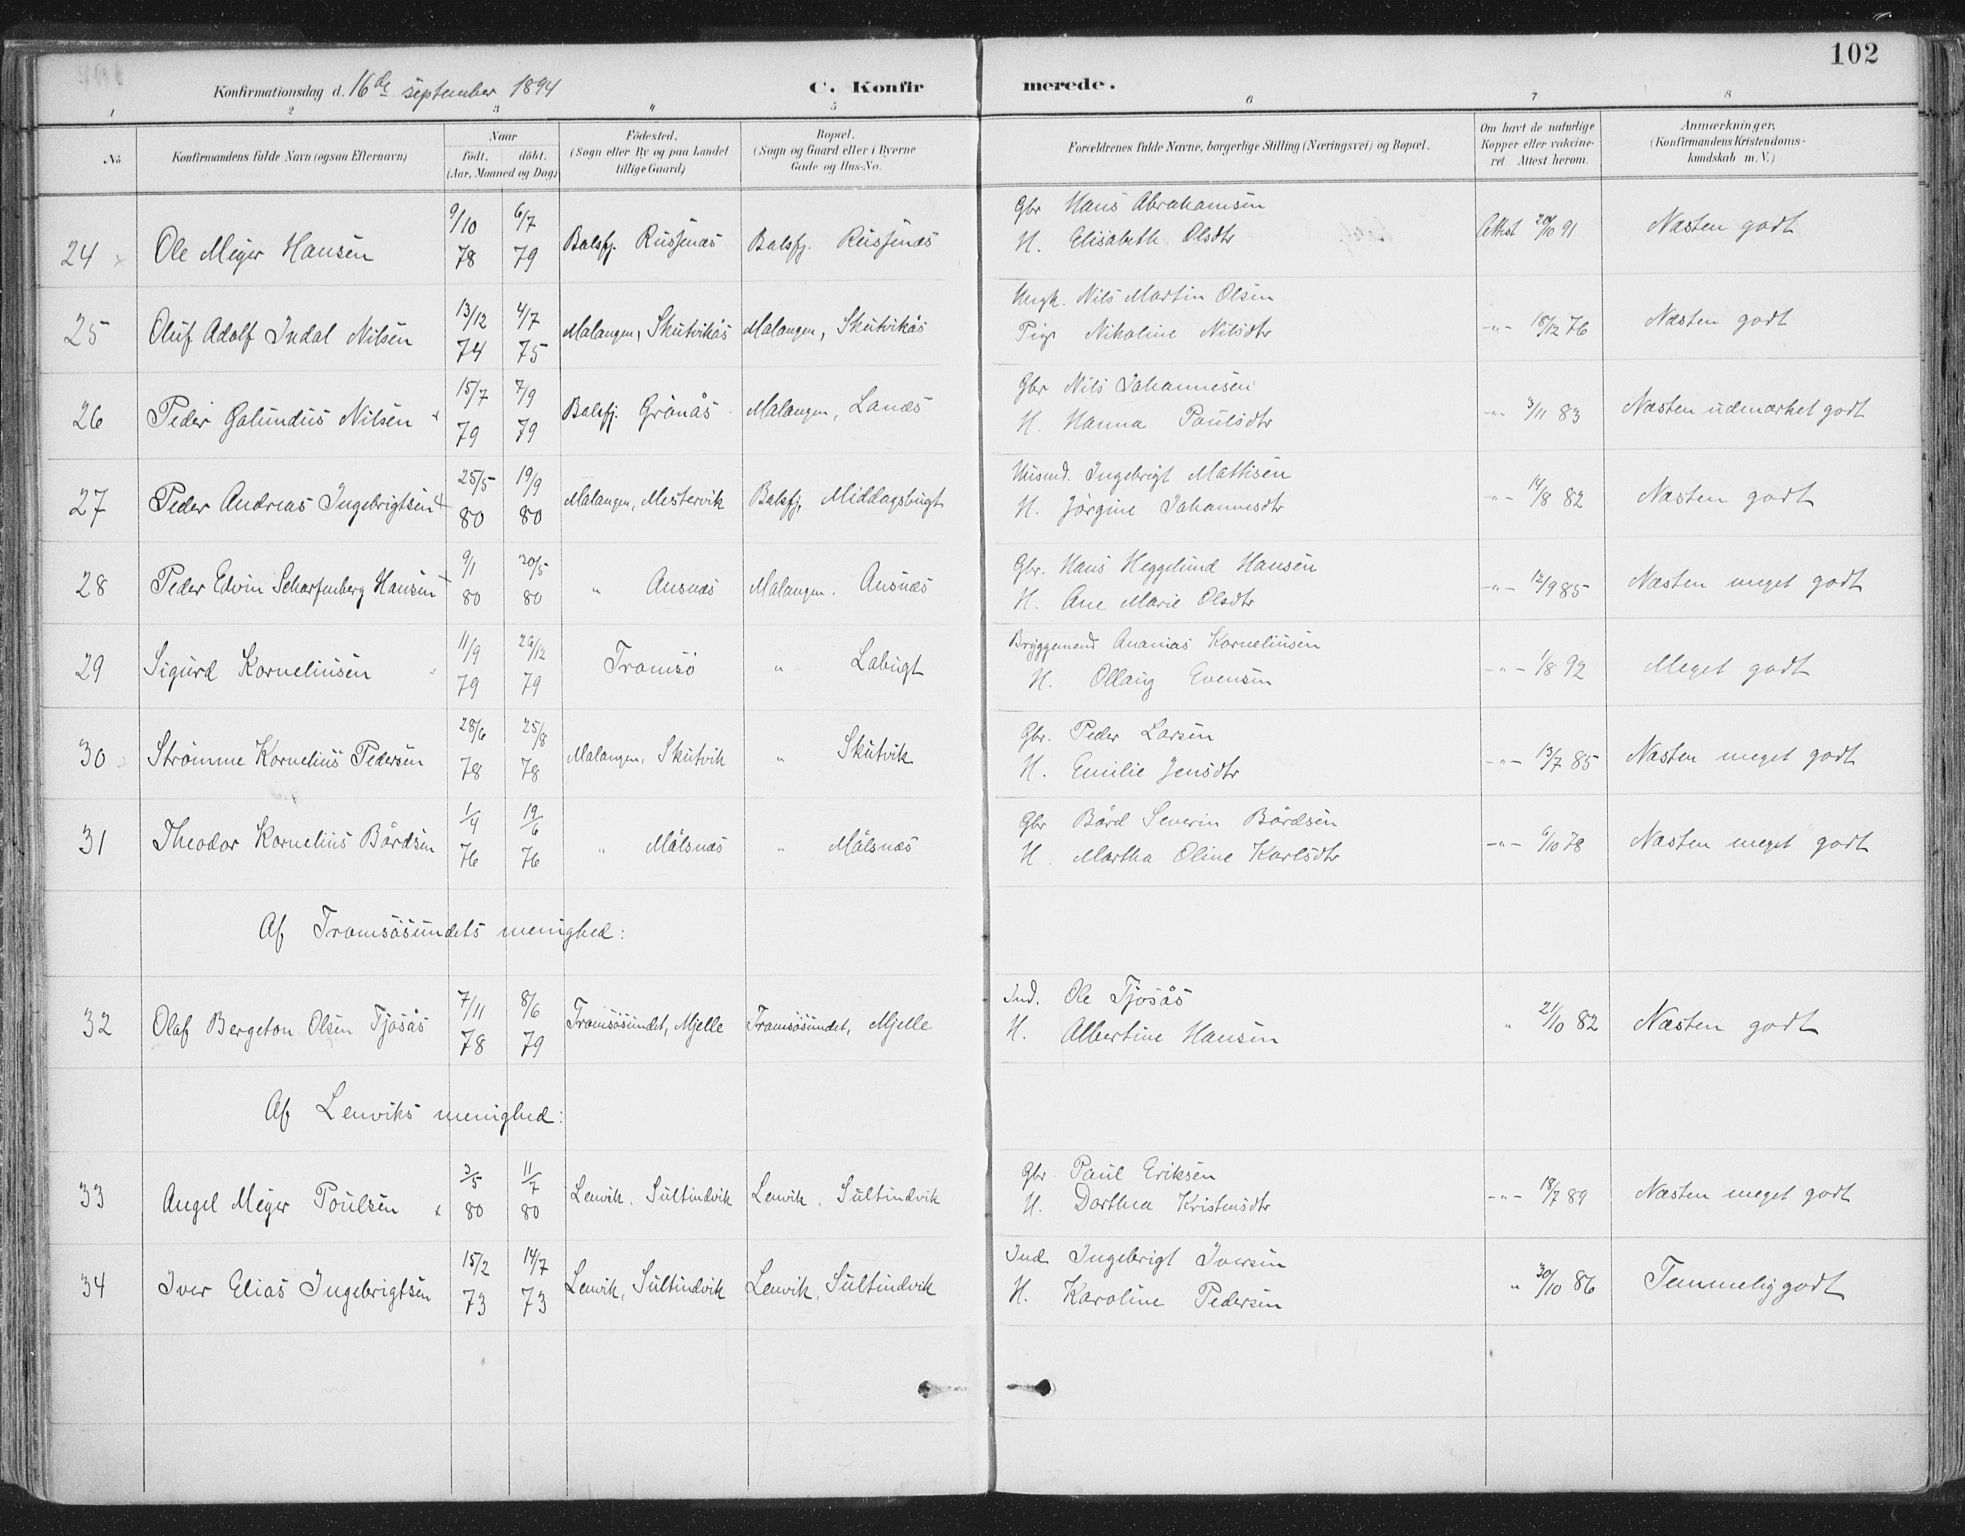 102
Konfirmationsdag d. 16de september 1894 C. Konfirmerede.
1 2 3 4 5 6 7 8
No Konfirmandens fulde Navn (ogsaa Efternavn) Naar født. døbt. (Aar, Maaned og Dag) Fødested. (Sogn eller By og paa Landet tillige Gaard) Bopæl. (Sogn og Gaard eller i Byerne Gade og Hus-No. Forældrenes fulde Navne, borgerlige Stilling (Næringsvei) og Bopæl. Om havt de naturlige Kopper eller vakcineret. Attest herom. Anmærkninger. (Konfirmandens Kristendomskundskab m. V.)
24 Ole Mejer Hansen 9/10 78 6/7 79 Balsfj. Russenæs Balsfj. Russenæs Gbr Hans Abrahamsen Attest 20/10 91 Næsten godt
H. Elisabeth Olsdtr
25 Oluf Adolf Indal Nilsen 13/12 74 4/7 75 Malangen, Skutvikås Malangen, Skutvikås Ungk. Nils Martin Olsen -"- 18/12 76 Næsten godt
Pige Nikoline Nilsdtr
26 Peder Galundus Nilsen 15/7 79 7/9 79 Balsfj. Grønås Malangen, Lanæs Gbr Nils Johannesen -"- 3/11 83 Næsten udmærket godt
H. Hanna Paulsdtr
27 Peder Andreas Ingebrigtsen 25/5 80 19/9 80 Malangen, Mestervik Balsfj. Middagsbugt Husmd. Ingebrigt Mattisen -"- 14/8 82 Næsten godt
H. Jørgine Johannesdtr
28 Peder Edvin Scharfenberg Hansen 9/1 80 30/5 80 " Ansnæs Malangen. Ansnæs Gbr. Hans Heggelund Hansen -"- 12/9 85 Næsten meget godt
H. Ane Marie Olsdtr
29 Sigurd Korneliusen 11/9 79 29/12 79 Tromsø " Labugt Bryggemand Ananias Korneliusen -"- 1/8 92 Meget godt
H. Ollaug Evensen
30 Strømme Kornelius Pedersen 28/6 78 25/8 78 Malangen, Skutvik " Skutvik Gbr. Peder Larsen -"- 13/7 85 Næsten meget godt
H. Emilie Jensdtr
31 Theodor Kornelius Bårdsen 1/4 76 19/6 76 " Målsnæs " Målsnæs Gbr Bård Severin Bårdsen -"- 6/10 78 Næsten meget godt
H. Martha Oline Karlsdtr
Af Tromsøsundets menighed:
32 Olaf Bergeton Olsen Tjosås 7/11 78 8/6 79 Tromsøsundet, Mjelle Tromsøsundet, Mjelle Ind. Ole Tjosås " 21/10 82 Næsten godt
H. Albertine Hansen
Af Lenviks menighed:
33 Angel Mejer Poulsen 3/5 80 11/7 80 Lenvik. Sultindvik Lenvik. Sultindvik Gbr Paul Eriksen -"- 18/7 89 Næsten meget godt
H. Dorthea Kristensdtr
34 Iver Elias Ingebrigtsen 15/2 73 14/7 73 Lenvik, Sultindvik Lenvik, Sultindvik Ind. Ingebrigt Iversen " 30/10 86 Temmelig godt
H. Karoline Pedersen